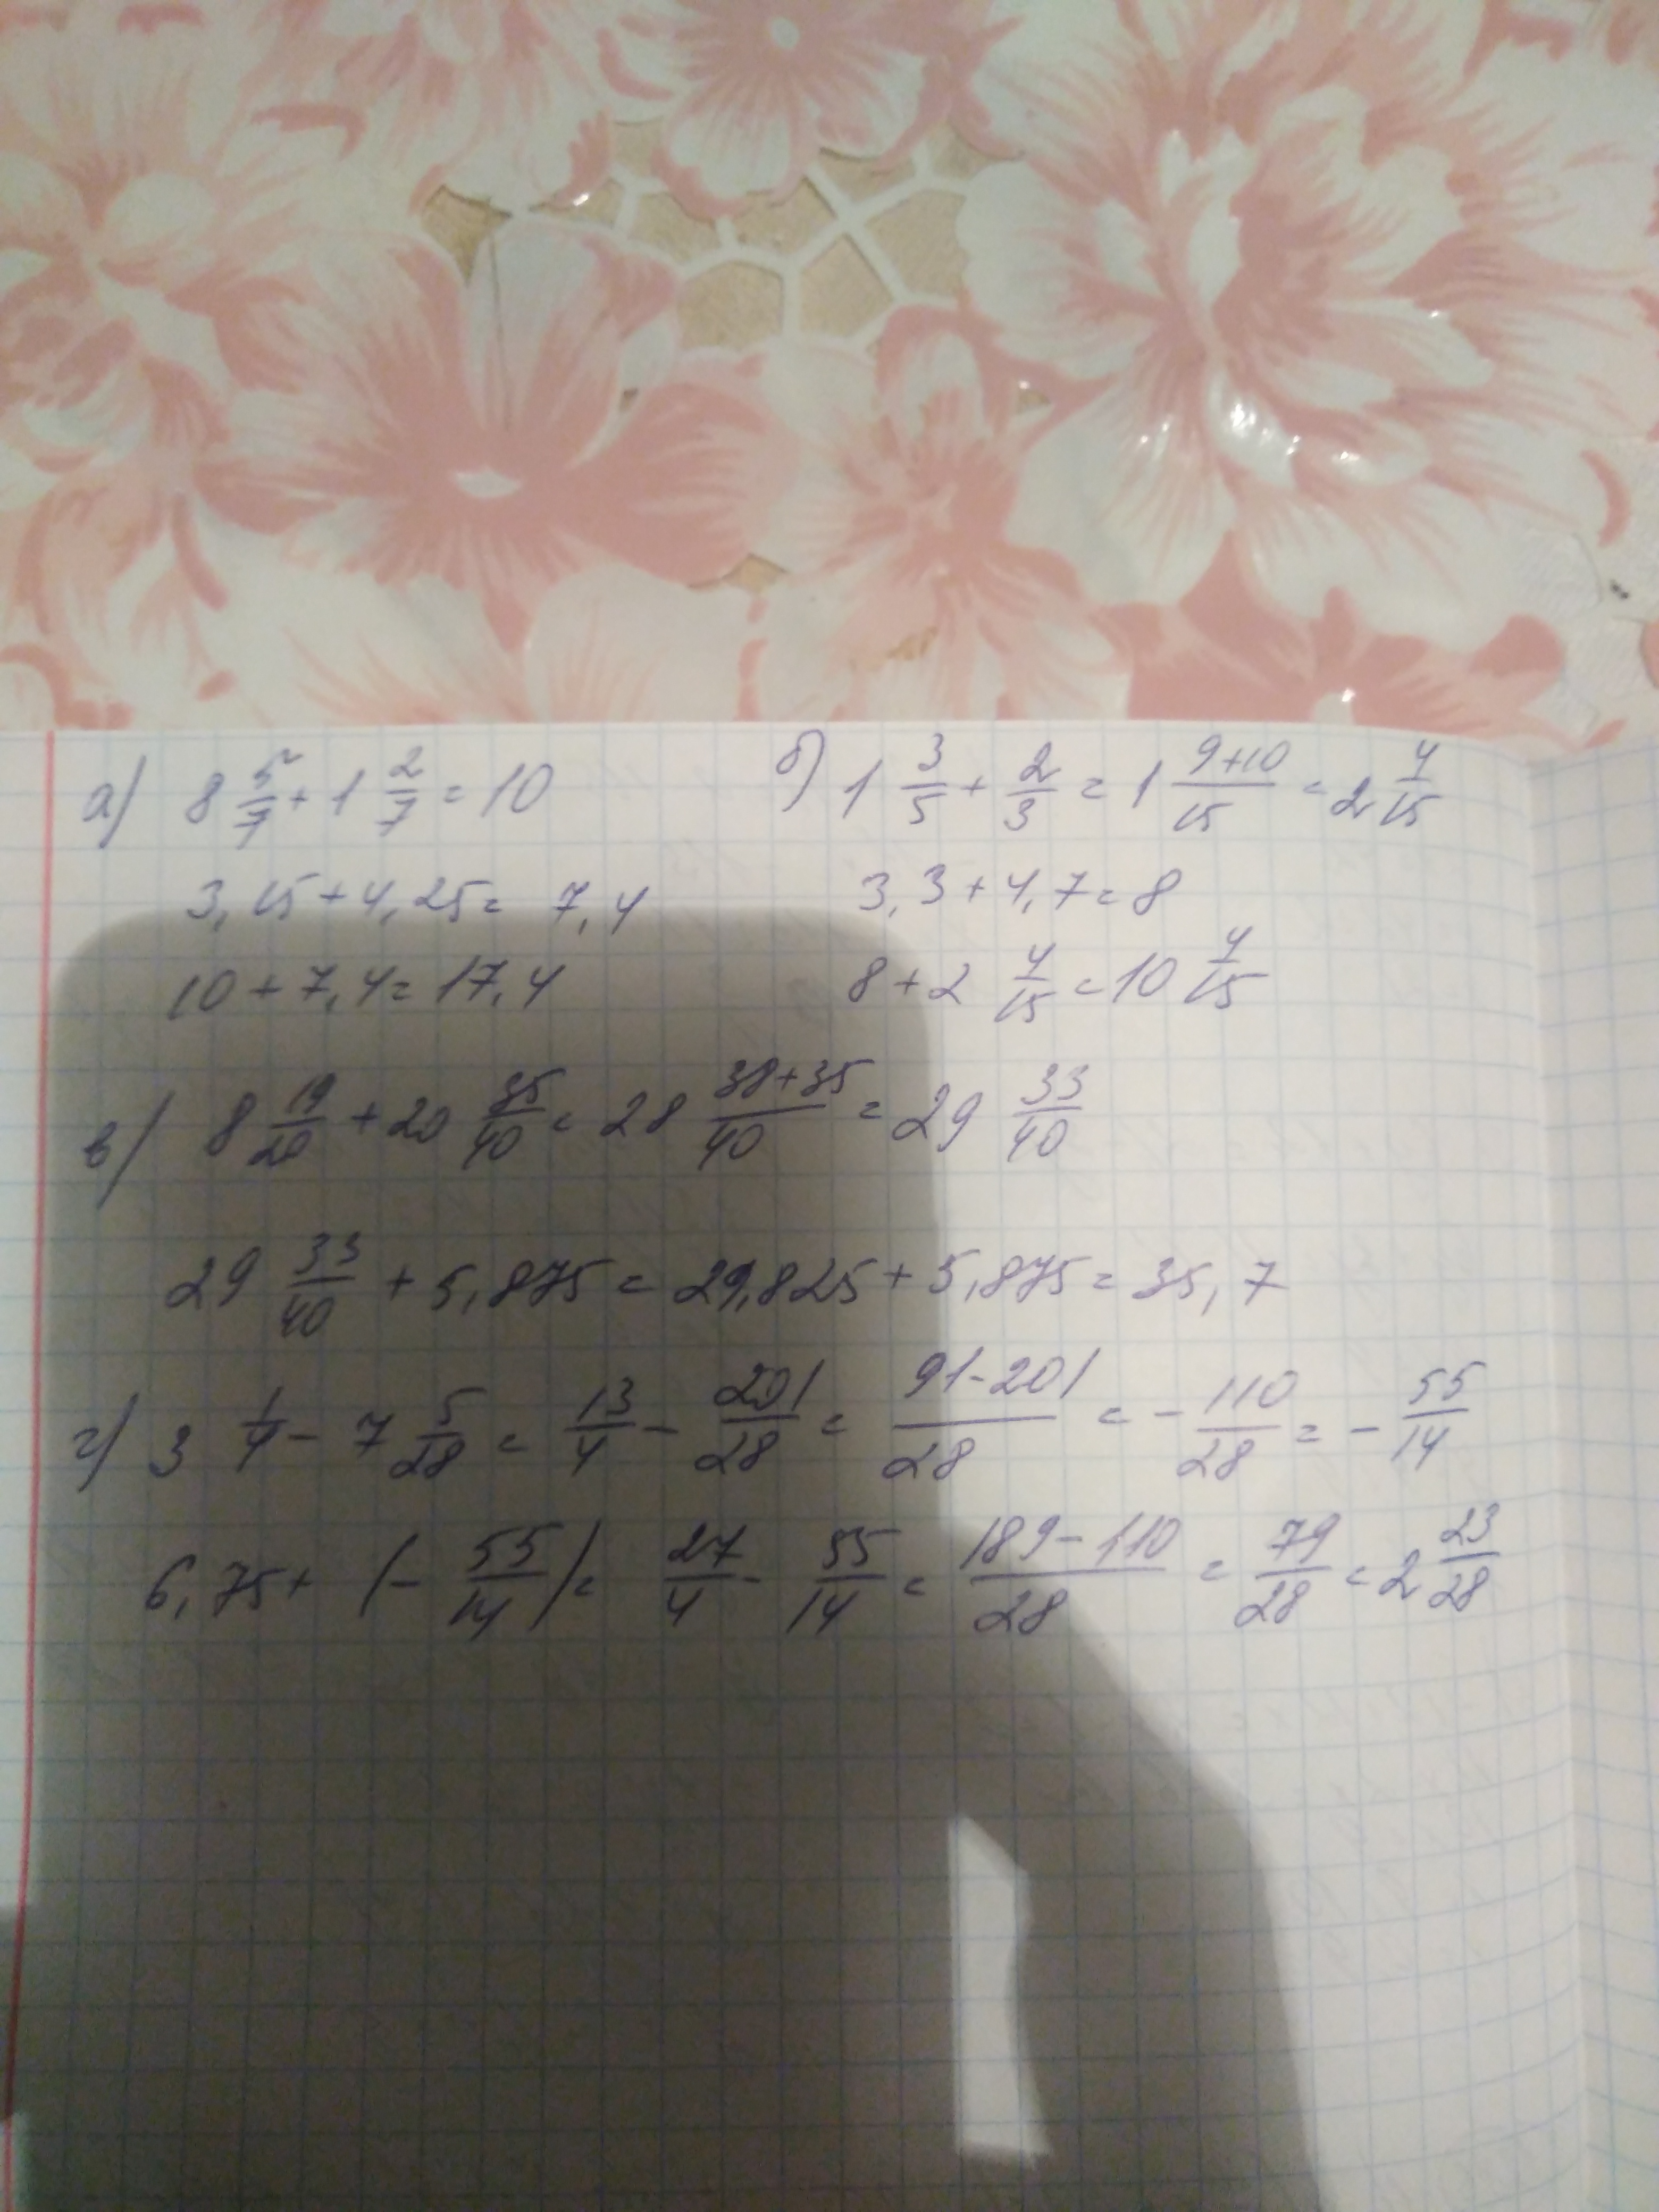 а) 8 5/7 + 1 2/7 = 10
3,15 + 4,25 = 7,4
10 + 7,4 = 17,4
б) 1 3/5 + 2/3 = 1 (9+10)/15 = 2 4/15
3,3 + 4,7 = 8
8 + 2 4/15 = 10 4/15
в) 8 19/20 + 20 35/40 = 28 (38+35)/40 = 29 33/40
29 33/40 + 5,875 = 29,825 + 5,875 = 35,7
г) 3 1/4 - 7 5/28 = 13/4 - 201/28 = (91-201)/28 = - 110/28 = - 55/14
6,75 + (- 55/14) = 27/4 - 55/14 = (189-110)/28 = 79/28 = 2 23/28